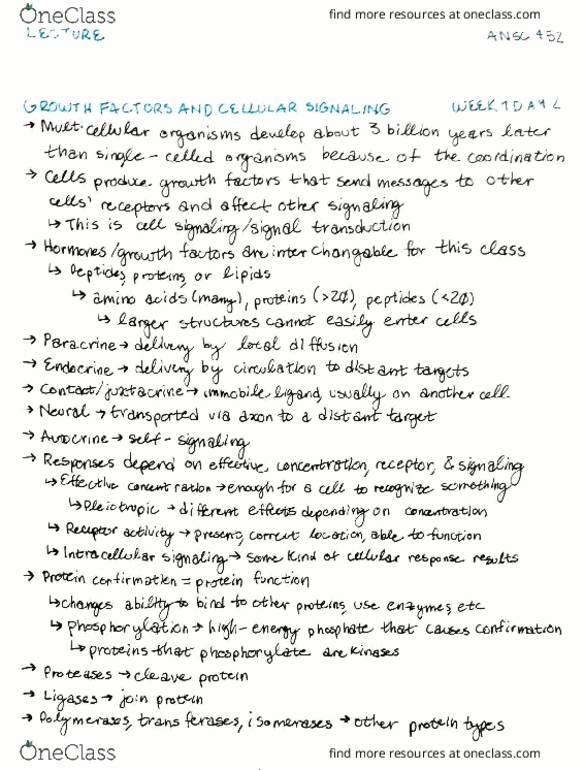 OneClass find more resources at oneclass.com
LECTURE ANSC 452
GROWTH FACTORS AND CELLULAR SIGNALING WEEK 1 DAY 2
→ Multi-cellular organisms develop about 3 billion years later
than single-celled organisms because of the coordination
→ Cells produce growth factors that send messages to other
cells' receptors and affect other signaling
↳ This is cell signaling/signal transduction
→ Hormones/growth factors are interchangable for this class
↳ Peptides, proteins, or lipids
↳ amino acids (many), proteins (>20), peptides (<20)
↳ larger structures cannot easily enter cells
→ Paracrine → delivery by local diffusion
→ Endocrine → delivery by circulation to distant targets
→ Contact/juxtacrine → immobile ligand, usually on another cell.
→ Neural → transported via axon to a distant target
→ Autocrine → self-signaling
→ Responses depend on effective concentration, receptor, & signaling
↳ Effective concentration → enough for a cell to recognize something
↳ Pleiotropic → different effects depending on concentration
↳ Receptor activity → present, correct location, able to function
↳ Intracellular signaling → some kind of cellular response results
→ Protein confirmation = protein function
↳ changes ability to bind to other proteins, use enzymes, etc
↳ phosphorylation → high-energy phosphate that causes confirmation
↳ proteins that phosphorylate are kinases
→ Proteases → cleave protein
→ Ligases → join protein
→ Polymerases, transferases, isomerases → other protein types
OneClass find more resources at oneclass.com